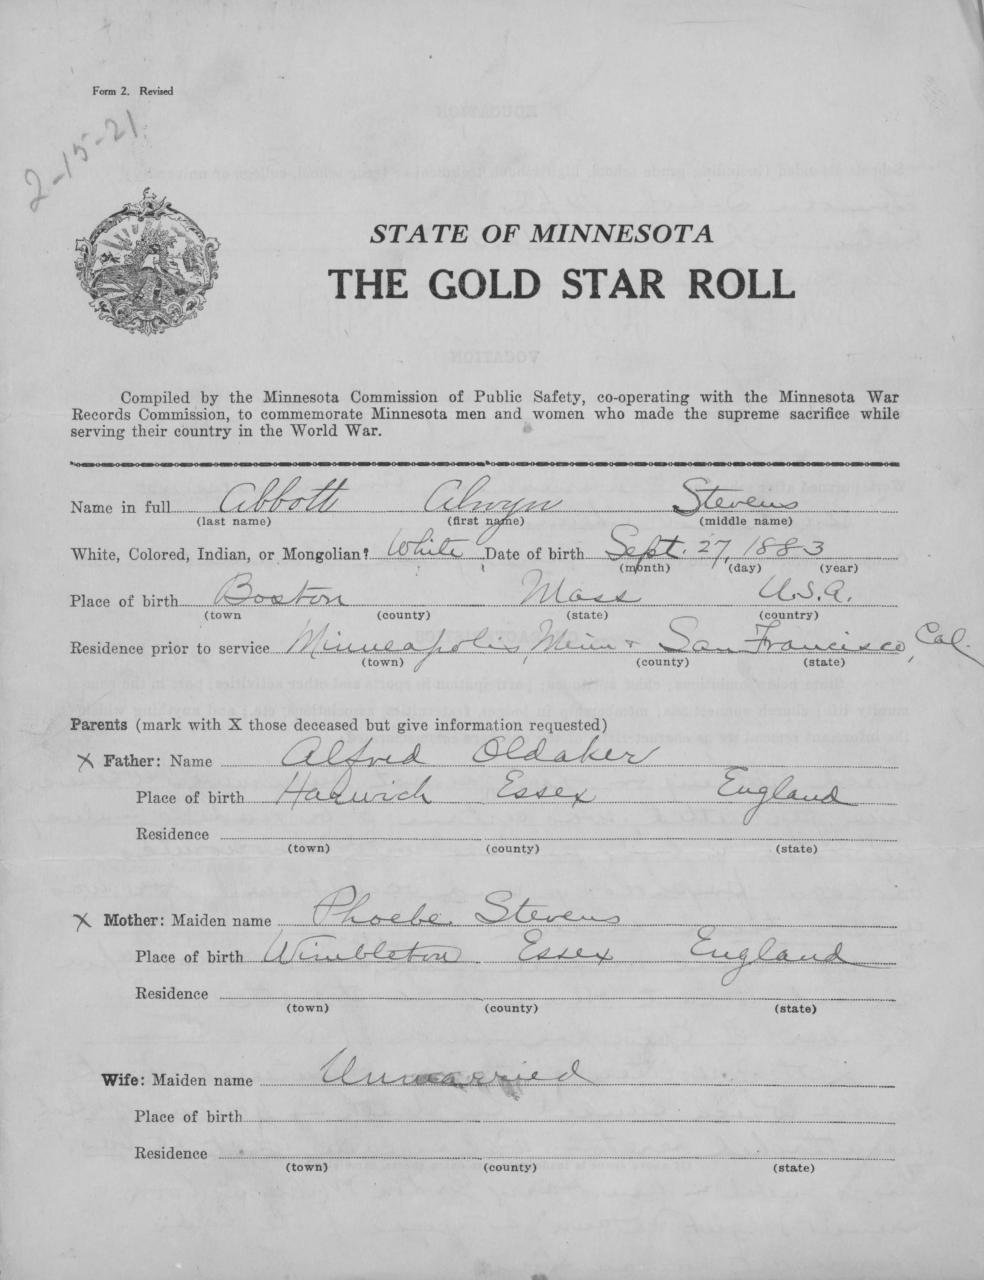 Form 2. Revised
2-15-21.
STATE OF MINNESOTA
THE GOLD STAR ROLL
Compiled by the Minnesota Commission of Public Safety, co-operating with the Minnesota War
Records Commission, to commemorate Minnesota men and women who made the supreme sacrifice while
serving their country in the World War.
Name in full Abbott Alwyn Stevens
(last name) (first name) (middle name)
White, Colored, Indian, or Mongolian? White Date of birth Sept. 27, 1883
(month) (day) (year)
Place of birth Boston Mass U.S.A.
(town (county) (state) (country)
Residence prior to service Minneapolis, Minn + San Francisco, Cal.
(town) (county) (state)
Parents (mark with X those deceased but give information requested)
X Father: Name Alfred Oldaker
Place of birth Harwich Essex England
Residence
(town) (county) (state)
X Mother: Maiden name Phoebe Stevens
Place of birth Wimbleton Essex England
Residence
(town) (county) (state)
Wife: Maiden name Unmarried
Place of birth
Residence
(town) (county) (state)